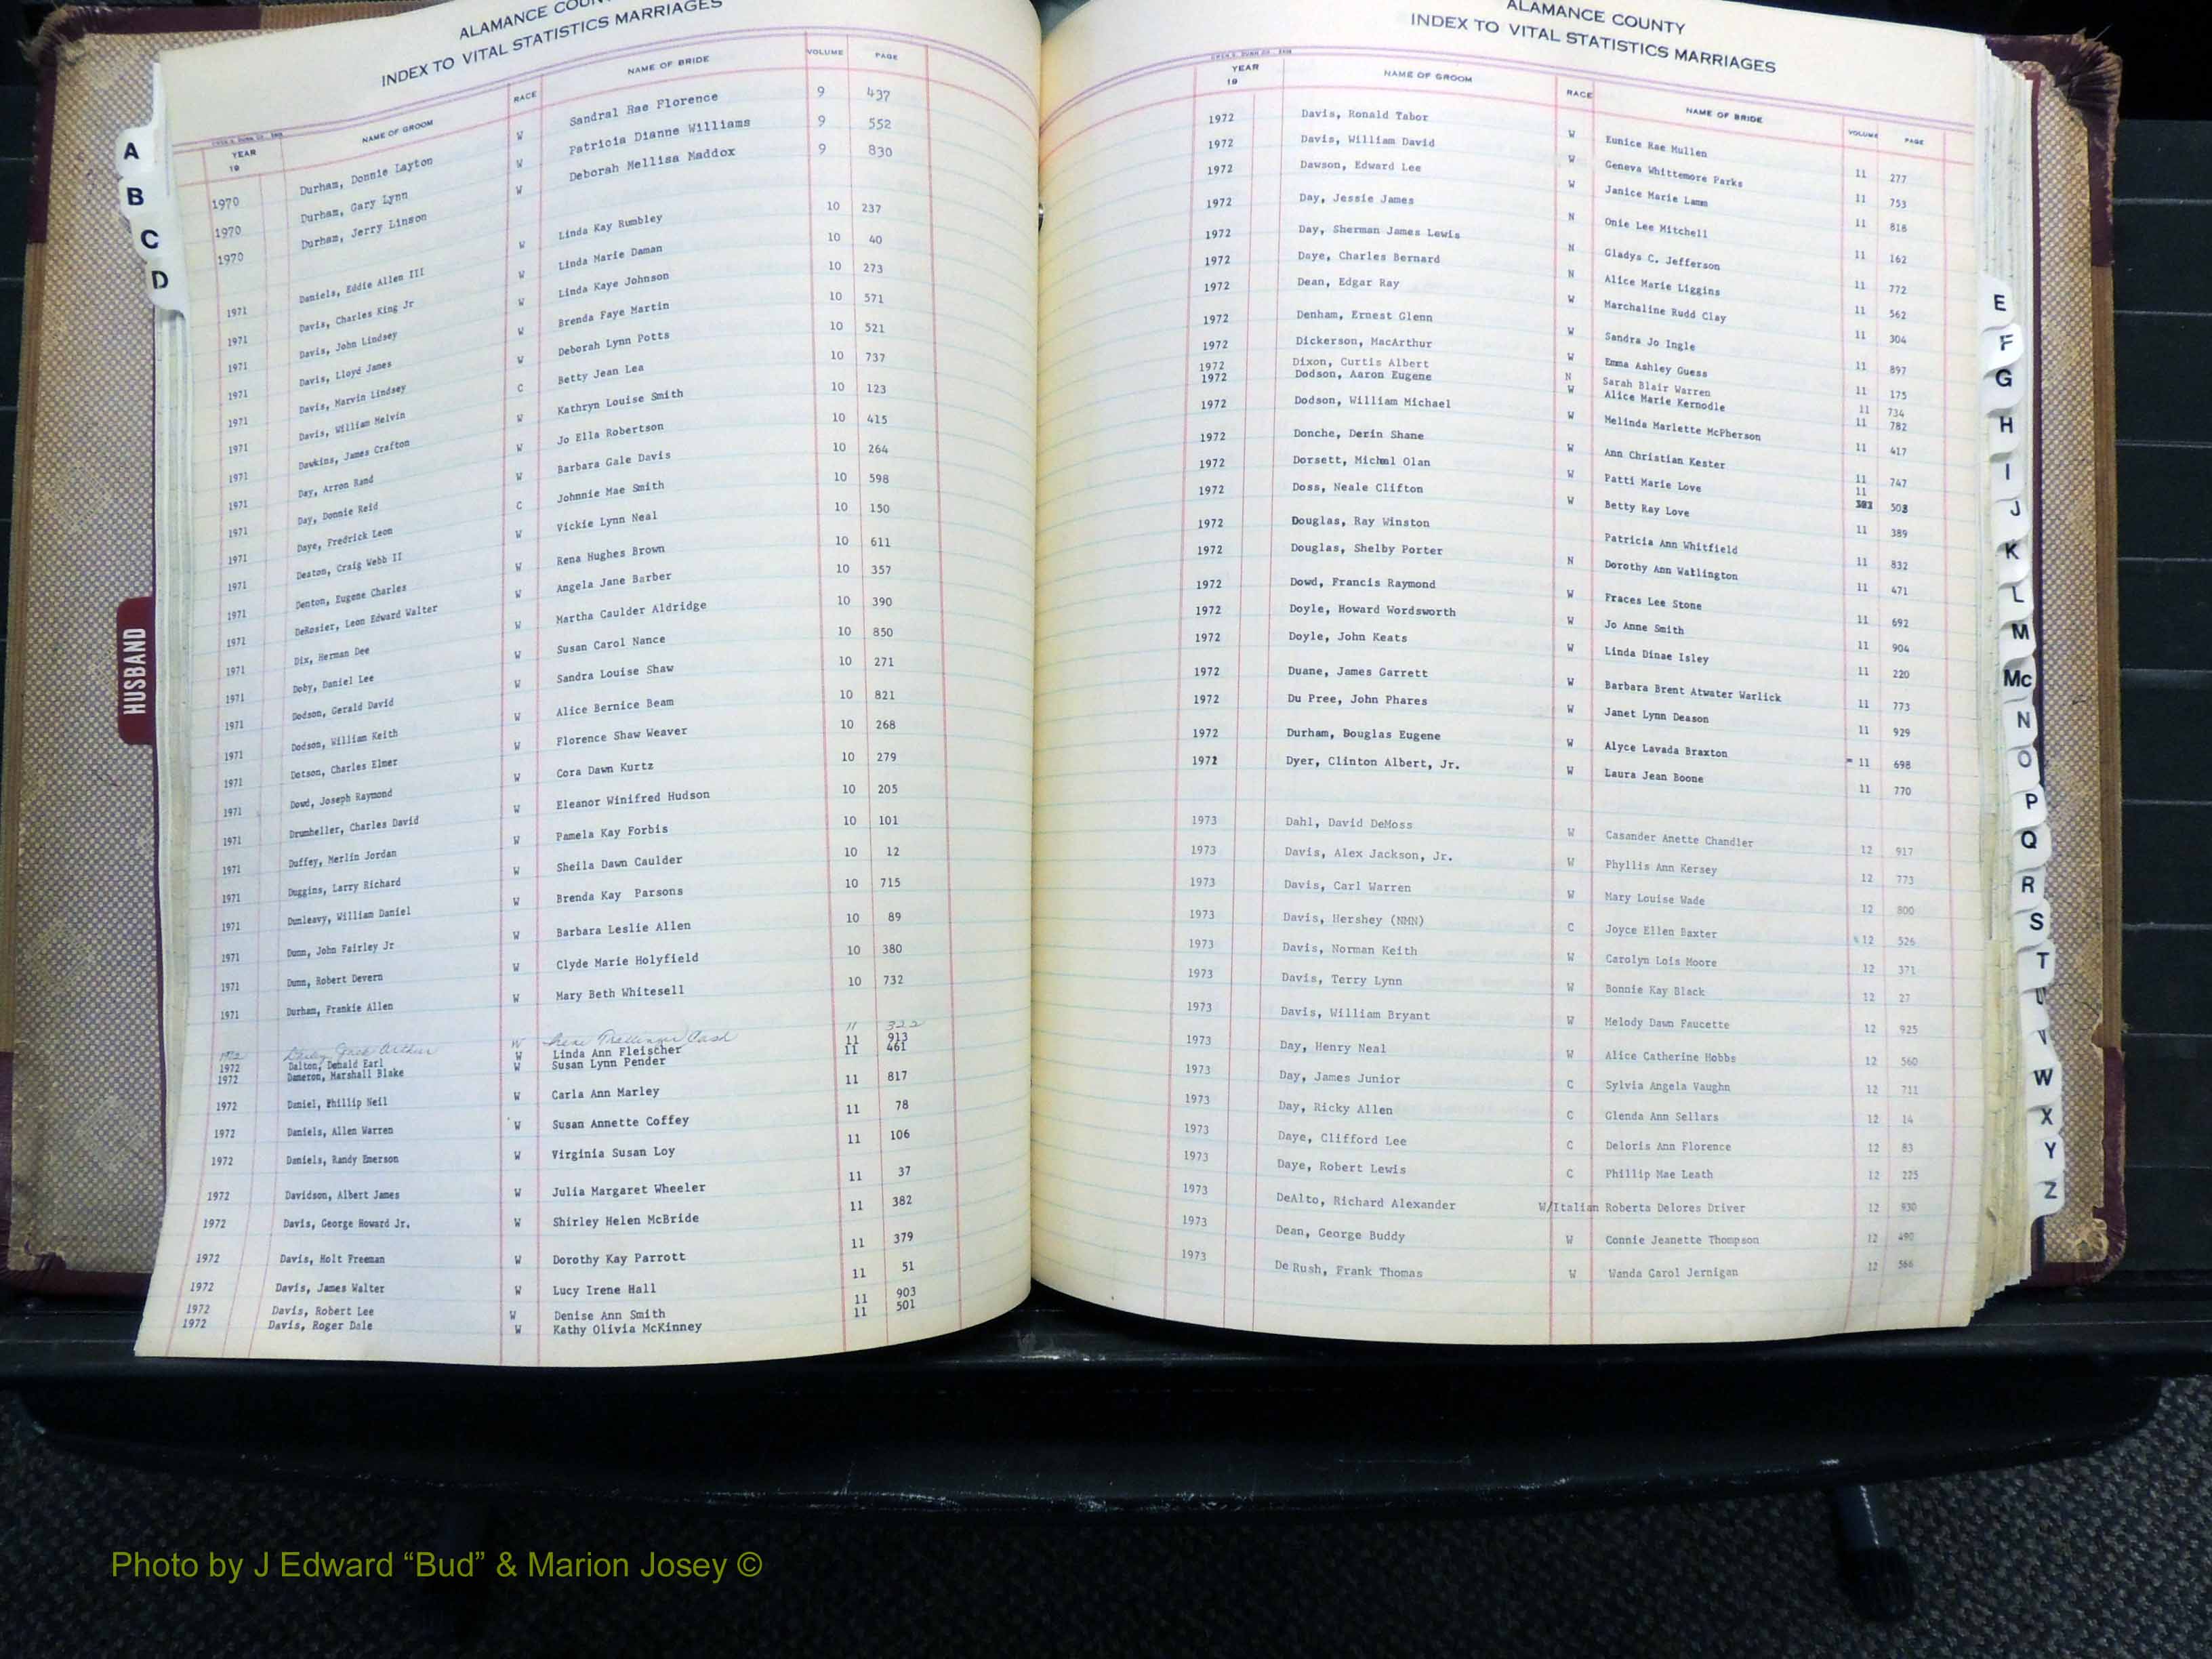 ALAMANCE COUN
INDEX TO VITAL STATISTICS MARRIAGES
YEAR 19 NAME OF GROOM RACE NAME OF BRIDE VOLUME PAGE
1970 Durham, Donnie Layton W Sandral Rae Florence 9 437
1970 Durham, Gary Lynn W Patricia Dianne Williams 9 552
1970 Durham, Jerry Linson W Deborah Mellisa Maddox 9 830
1971 Daniels, Eddie Allen III W Linda Kay Rumbley 10 237
1971 Davis, Charles King Jr W Linda Marie Daman 10 40
1971 Davis, John Lindsey W Linda Kaye Johnson 10 273
1971 Davis, Lloyd James W Brenda Faye Martin 10 571
1971 Davis, Marvin Lindsey W Deborah Lynn Potts 10 521
1971 Davis, William Melvin C Betty Jean Lea 10 737
1971 Dawkins, James Crafton W Kathryn Louise Smith 10 123
1971 Day, Arron Rand W Jo Ella Robertson 10 415
1971 Day, Donnie Reid W Barbara Gale Davis 10 264
1971 Daye, Fredrick Leon C Johnnie Mae Smith 10 598
1971 Deaton, Craig Webb II W Vickie Lynn Neal 10 150
1971 Denton, Eugene Charles W Rena Hughes Brown 10 611
1971 DeRosier, Leon Edward Walter W Angela Jane Barber 10 357
1971 Dix, Herman Dee W Martha Caulder Aldridge 10 390
1971 Doby, Daniel Lee W Susan Carol Nance 10 850
1971 Dodson, Gerald David W Sandra Louise Shaw 10 271
1971 Dodson, William Keith W Alice Bernice Beam 10 821
1971 Dotson, Charles Elmer W Florence Shaw Weaver 10 268
1971 Dowd, Joseph Raymond W Cora Dawn Kurtz 10 279
1971 Drumheller, Charles David W Eleanor Winifred Hudson 10 205
1971 Duffey, Merlin Jordan W Pamela Kay Forbis 10 101
1971 Duggins, Larry Richard W Sheila Dawn Caulder 10 12
1971 Dunleavy, William Daniel W Brenda Kay Parsons 10 715
1971 Dunn, John Fairley Jr W Barbara Leslie Allen 10 89
1971 Dunn, Robert Devern W Clyde Marie Holyfield 10 380
1971 Durham, Frankie Allen W Mary Beth Whitesell 10 732
1972 Arthur W Cash 11 322
1972 Dalton, Donald Earl W Linda Ann Fleischer 11 913
1972 Dameron, Marshall Blake W Susan Lynn Pender 11 461
1972 Daniel, Phillip Neil W Carla Ann Marley 11 817
1972 Daniels, Allen Warren W Susan Annette Coffey 11 78
1972 Daniels, Randy Emerson W Virginia Susan Loy 11 106
1972 Davidson, Albert James W Julia Margaret Wheeler 11 37
1972 Davis, George Howard Jr. W Shirley Helen McBride 11 382
1972 Davis, Holt Freeman W Dorothy Kay Parrott 11 379
1972 Davis, James Walter W Lucy Irene Hall 11 51
1972 Davis, Robert Lee W Denise Ann Smith 11 903
1972 Davis, Roger Dale W Kathy Olivia McKinney 11 501
ALAMANCE COUNTY
INDEX TO VITAL STATISTICS MARRIAGES
YEAR 19 NAME OF GROOM RACE NAME OF BRIDE VOLUME PAGE
1972 Davis, Ronald Tabor W Eunice Rae Mullen 11 277
1972 Davis, William David W Geneva Whittemore Parks 11 753
1972 Dawson, Edward Lee W Janice Marie Lamm 11 816
1972 Day, Jessie James N Onie Lee Mitchell 11 162
1972 Day, Sherman James Lewis N Gladys C. Jefferson 11 772
1972 Daye, Charles Bernard N Alice Marie Liggins 11 562
1972 Dean, Edgar Ray W Marchaline Rudd Clay 11 304
1972 Denham, Ernest Glenn W Sandra Jo Ingle 11 897
1972 Dickerson, MacArthur W Emma Ashley Guess 11 175
1972 Dixon, Curtis Albert N Sarah Blair Warren 11 734
1972 Dodson, Aaron Eugene W Alice Marie Kernodle 11 782
1972 Dodson, William Michael W Melinda Marlette McPherson 11 417
1972 Donche, Derin Shane W Ann Christian Kester 11 747
1972 Dorsett, Michael Olan W Patti Marie Love 11 503
1972 Doss, Neale Clifton W Betty Ray Love 11 389
1972 Douglas, Ray Winston Patricia Ann Whitfield 11 832
1972 Douglas, Shelby Porter N Dorothy Ann Watlington 11 471
1972 Dowd, Francis Raymond W Fraces Lee Stone 11 692
1972 Doyle, Howard Wordsworth W Jo Anne Smith 11 904
1972 Doyle, John Keats W Linda Dinae Isley 11 220
1972 Duane, James Garrett W Barbara Brent Atwater Warlick 11 773
1972 Du Pree, John Phares W Janet Lynn Deason 11 929
1972 Durham, Douglas Eugene W Alyce Lavada Braxton 11 698
1972 Dyer, Clinton Albert, Jr. W Laura Jean Boone 11 770
1973 Dahl, David DeMoss W Casander Anette Chandler 12 917
1973 Davis, Alex Jackson, Jr. W Phyllis Ann Kersey 12 773
1973 Davis, Carl Warren W Mary Louise Wade 12 800
1973 Davis, Hershey (NMN) C Joyce Ellen Baxter 12 526
1973 Davis, Norman Keith W Carolyn Lois Moore 12 371
1973 Davis, Terry Lynn W Bonnie Kay Black 12 27
1973 Davis, William Bryant W Melody Dawn Faucette 12 925
1973 Day, Henry Neal W Alice Catherine Hobbs 12 560
1973 Day, James Junior C Sylvia Angela Vaughn 12 711
1973 Day, Ricky Allen C Glenda Ann Sellars 12 14
1973 Daye, Clifford Lee C Deloris Ann Florence 12 83
1973 Daye, Robert Lewis C Phillip Mae Leath 12 225
1973 DeAlto, Richard Alexander W/Italian Roberta Delores Driver 12 930
1973 Dean, George Buddy W Connie Jeanette Thompson 12 490
1973 DeRush, Frank Thomas W Wanda Carol Jernigan 12 566
A
B
C
D
HUSBAND
E
F
G
H
I
J
K
L
M
Mc
N
O
P
Q
R
S
T
U
V
W
X
Y
Z
Photo by J Edward “Bud” & Marion Josey ©